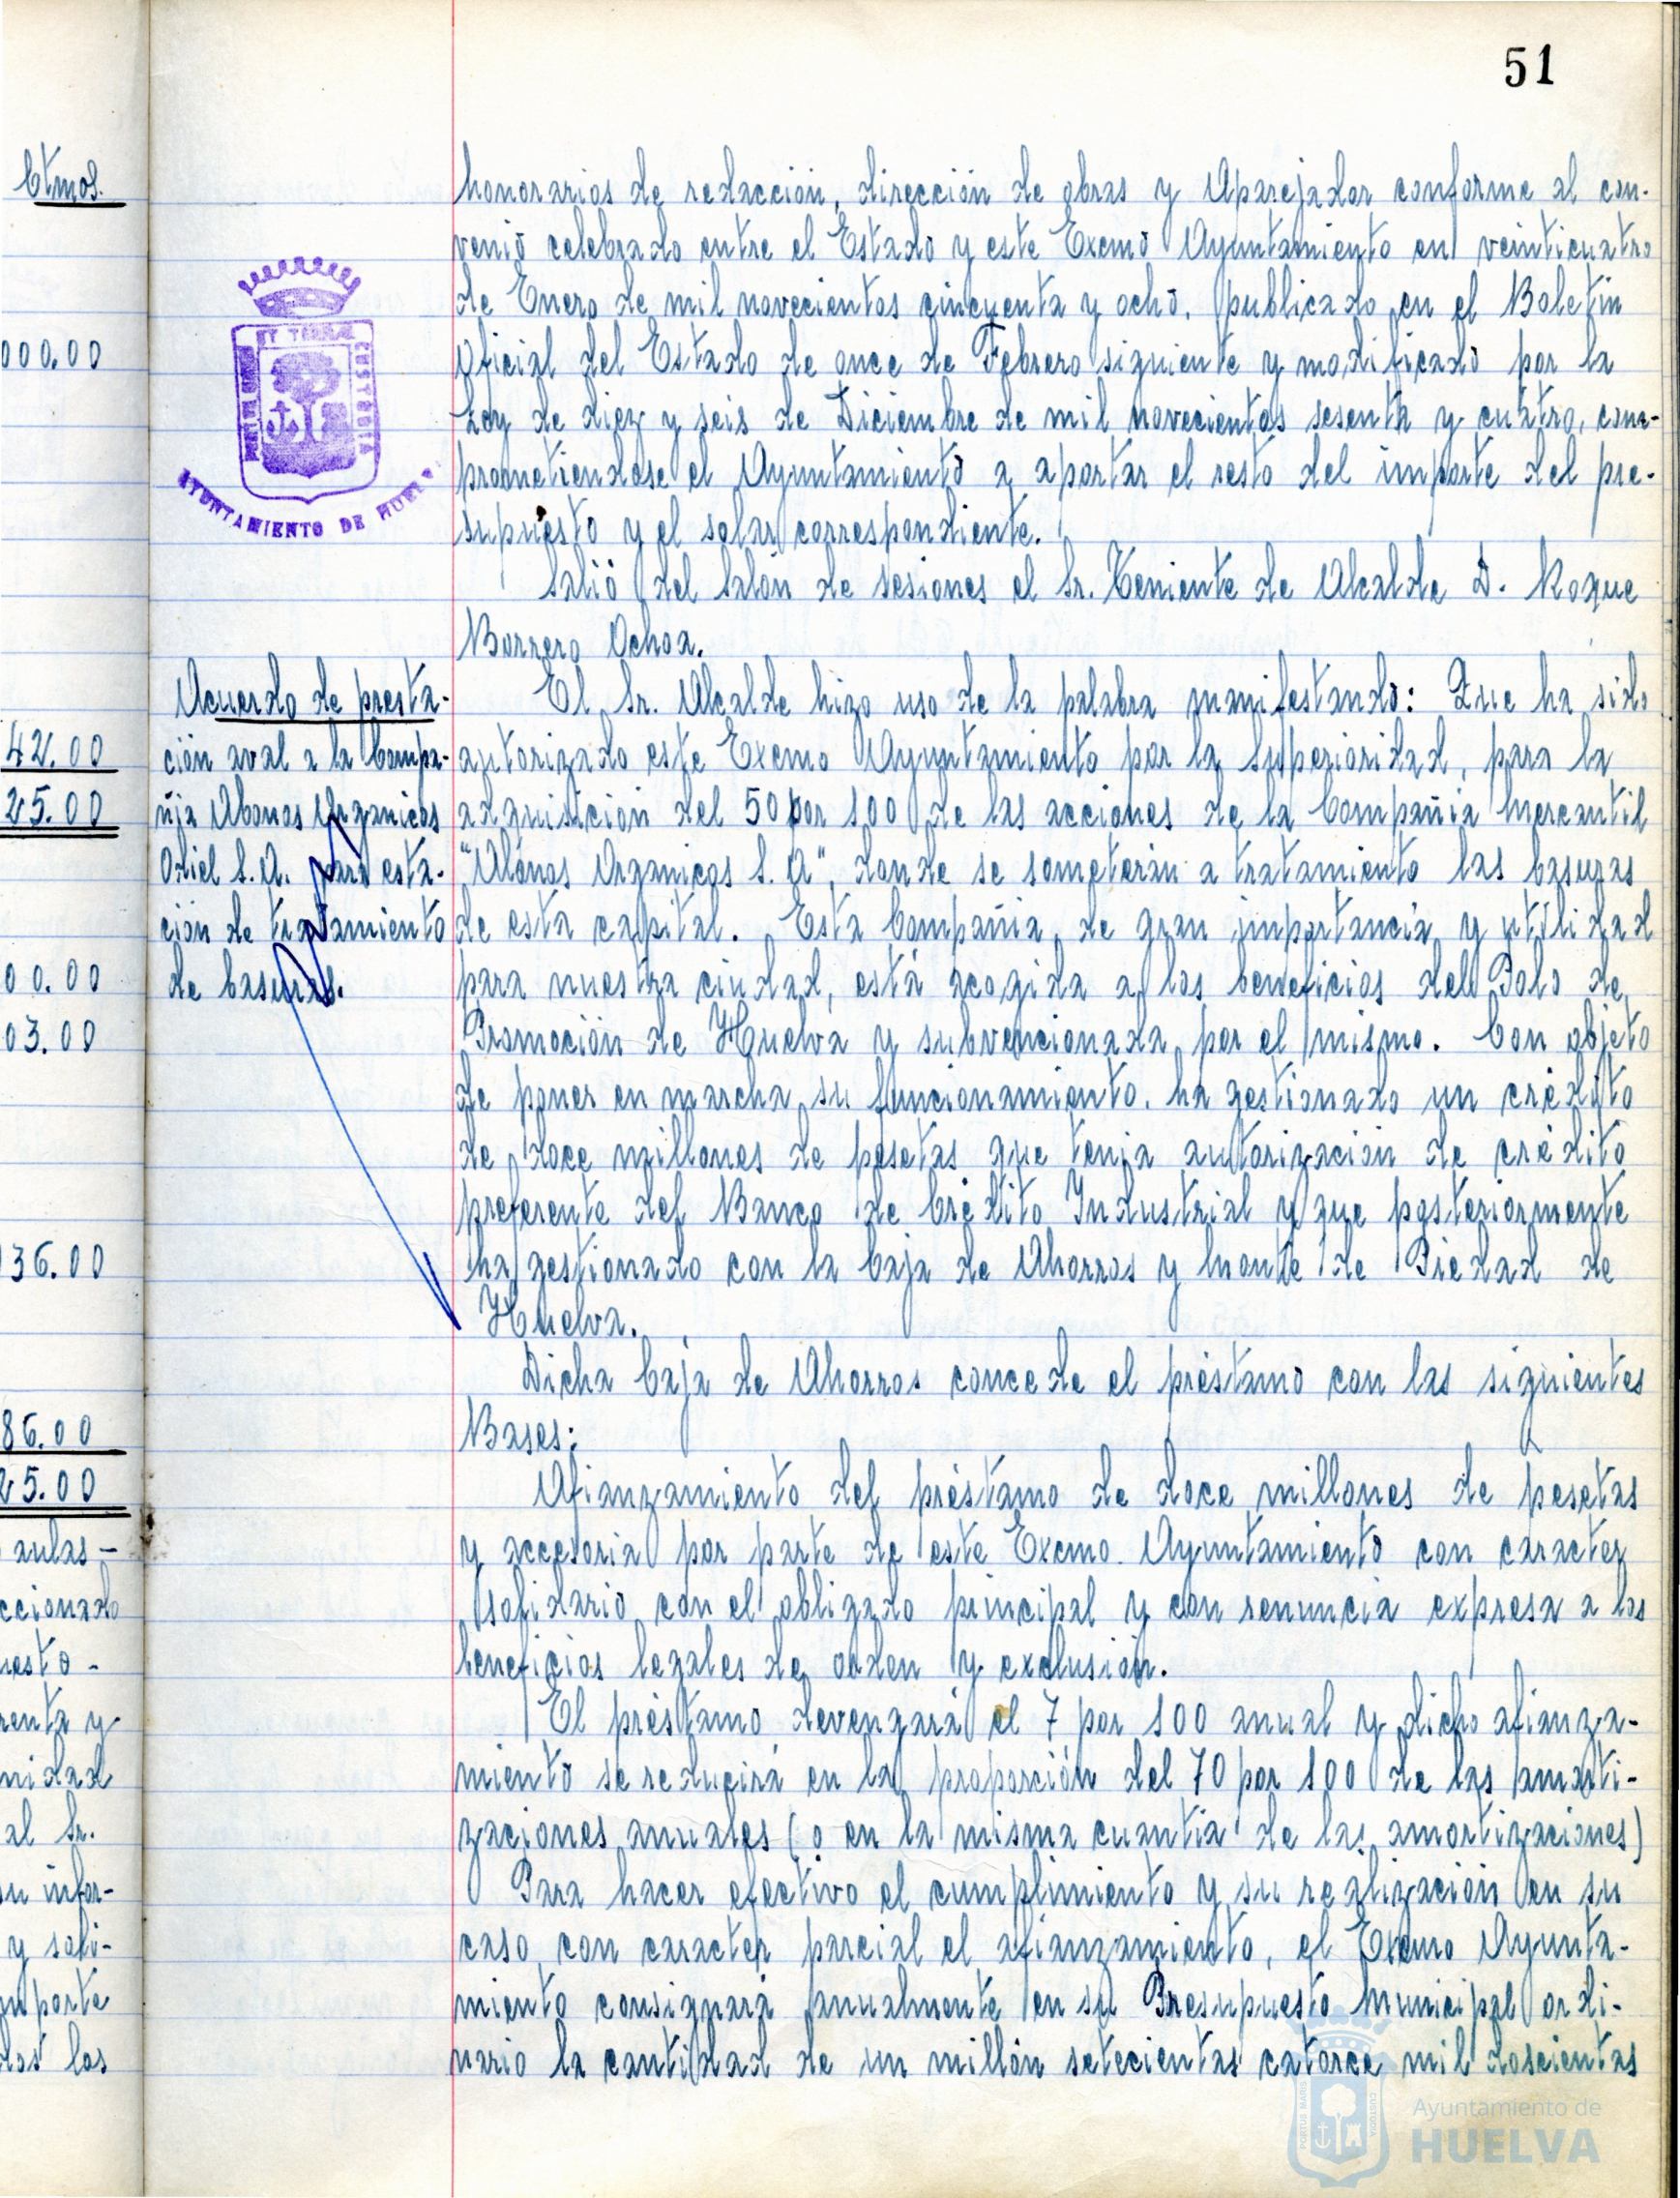 51
Ctmos.
000.00
42.00
25.00
00.00
03.00
036.00
86.00
25.00
aulas -
ccionado
uesto -
renta y
nidad
al Sr.
su infor-
y soli-
importe
dos los
PORTUS MARIS ET TERRAE CUSTODIA
AYUNTAMIENTO DE HUELVA
Acuerdo de presta-
ción aval a la Compa-
ñia Abonos Organicos
Odiel S.A. para esta-
ción de tratamiento
de basuras.
honorarios de redacción, dirección de obras y Aparejador conforme al con-
venio celebrado entre el Estado y este Excmo Ayuntamiento en veinticuatro
de Enero de mil novecientos cincuenta y ocho, publicado en el Boletin
Oficial del Estado de once de Febrero siguiente y modificado por la
Ley de diez y seis de Diciembre de mil novecientos sesenta y cuatro, com-
prometiendose el Ayuntamiento a aportar el resto del importe del pre-
supuesto y el solar correspondiente.
Salió del Salón de sesiones el Sr. Teniente de Alcalde D. Roque
Barrero Ochoa.
El Sr. Alcalde hizo uso de la palabra manifestando: Que ha sido
autorizado este Excmo Ayuntamiento por la Superioridad, para la
adquisición del 50 por 100 de las acciones de la Compañia Mercantil
"Abonos Organicos S.A", donde se someterán a tratamiento las basuras
de esta capital. Esta Compañia, de gran importancia y utilidad
para nuestra ciudad, está acogida a los beneficios del Polo de
Promoción de Huelva y subvencionada por el mismo. Con objeto
de poner en marcha su funcionamiento, ha gestionado un crédito
de doce millones de pesetas que tenia autorización de crédito
preferente del Banco de Crédito Industrial y que posteriormente
ha gestionado con la Caja de Ahorros y Monte de Piedad de
Huelva.
Dicha Caja de Ahorros concede el préstamo con las siguientes
Bases:
Afianzamiento del préstamo de doce millones de pesetas
y accesoria por parte de este Excmo. Ayuntamiento con caracter
solidario con el obligado principal y con renuncia expresa a los
beneficios legales de orden y exclusión.
El préstamo devengará el 7 por 100 anual y dicho afianza-
miento se reducirá en la proporción del 70 por 100 de las amorti-
zaciones anuales (o en la misma cuantia de las amortizaciones)
Para hacer efectivo el cumplimiento y su realización en su
caso, con caracter parcial el afianzamiento, el Excmo Ayunta-
miento consignará anualmente en su Presupuesto Municipal ordi-
nario la cantidad de un millón setecientas catorce mil doscientas
PORTUS MARIS CUSTODIA
Ayuntamiento de
HUELVA